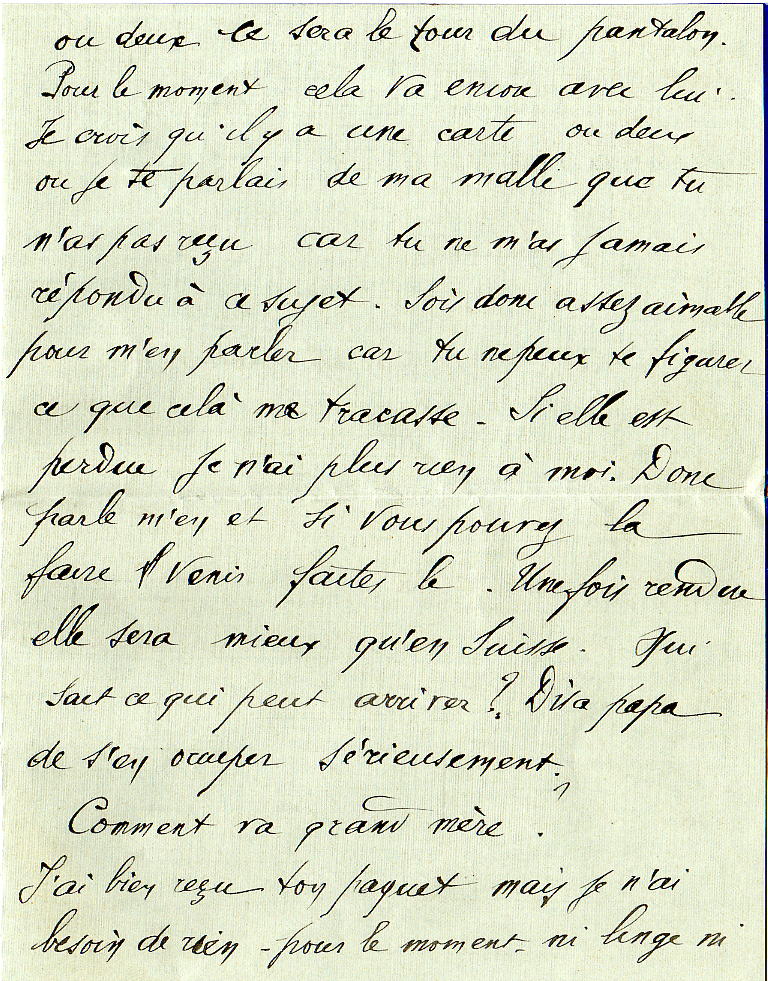 ou deux ce sera le tour du pantalon.
Pour le moment cela va encore avec lui.
Je crois qu'il y a une carte ou deux
ou je te parlais de ma malle que tu
n'as pas reçu car tu ne m'as jamais
répondu à ce sujet. Sois donc assez aimable
pour m'en parler car tu ne peux te figurer
ce que celà me tracasse - Si elle est
perdue je n'ai plus rien à moi. Donc
parle m'en et si vous pouvez la
faire venir faites le. Une fois rendue
elle sera mieux qu'en Suisse. Qui
sait ce qui peut arriver? Dis a papa
de s'en occuper sérieusement.
Comment va grand mère?
J'ai bien reçu ton paquet mais je n'ai
besoin de rien - pour le moment - ni linge ni